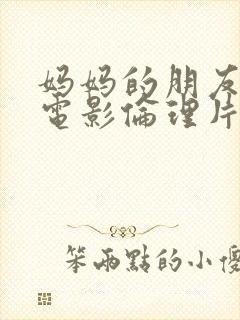 妈妈的朋友
電影倫理片
笨兩點的小傻